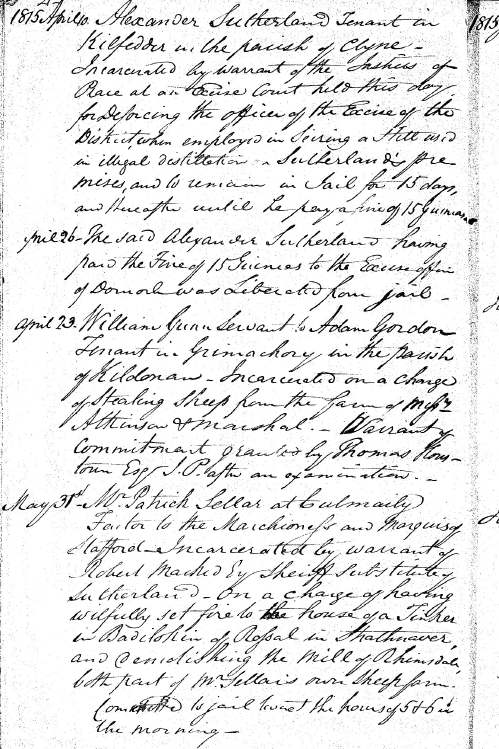 1815 April 10. Alexander Sutherland Tenant in
Kilfedder in the parish of Clyne -
Incarcerated by warrant of the Justices of
Peace at an Excise Court held this day,
for Deforcing the officer of the Excise of the
District when employed in Seizing a Still used
in illegal distillation on Sutherland's pre
mises, and to remain in Jail for 15 days,
and thereafter until he pay a fine of 15 Guineas.
April 26 - The said Alexander Sutherland having
paid the Fine of 15 Guineas to the Excise officer
of Dornoch was Liberated from jail -
April 23. William Gunn Servant to Adam Gordon
Tenant in Griamachory in the parish
of Kildonan - Incarcerated on a charge
of Stealing Sheep from the farm of Messrs
Atkinson & Marshal. - Warrant of
Commitment granted by Thomas Hous-
toun Esqr J.P. after an examination. -
May 31st - Mr Patrick Sellar at Culmaily
Factor to the Marchioness and Marquis of
Stafford - Incarcerated by warrant of
Robert Mackid Esqr Sheriff Substitute of
Sutherland - On a charge of having
wilfully set fire to the house of a Tinker
in Badiloskin of Rossal in Strathnaver,
and demolishing the Mill of Rhimsdale,
both part of Mr Sellar's own Sheep farm.
Committed to jail twixt the hours of 5 & 6 in
the morning -
1815